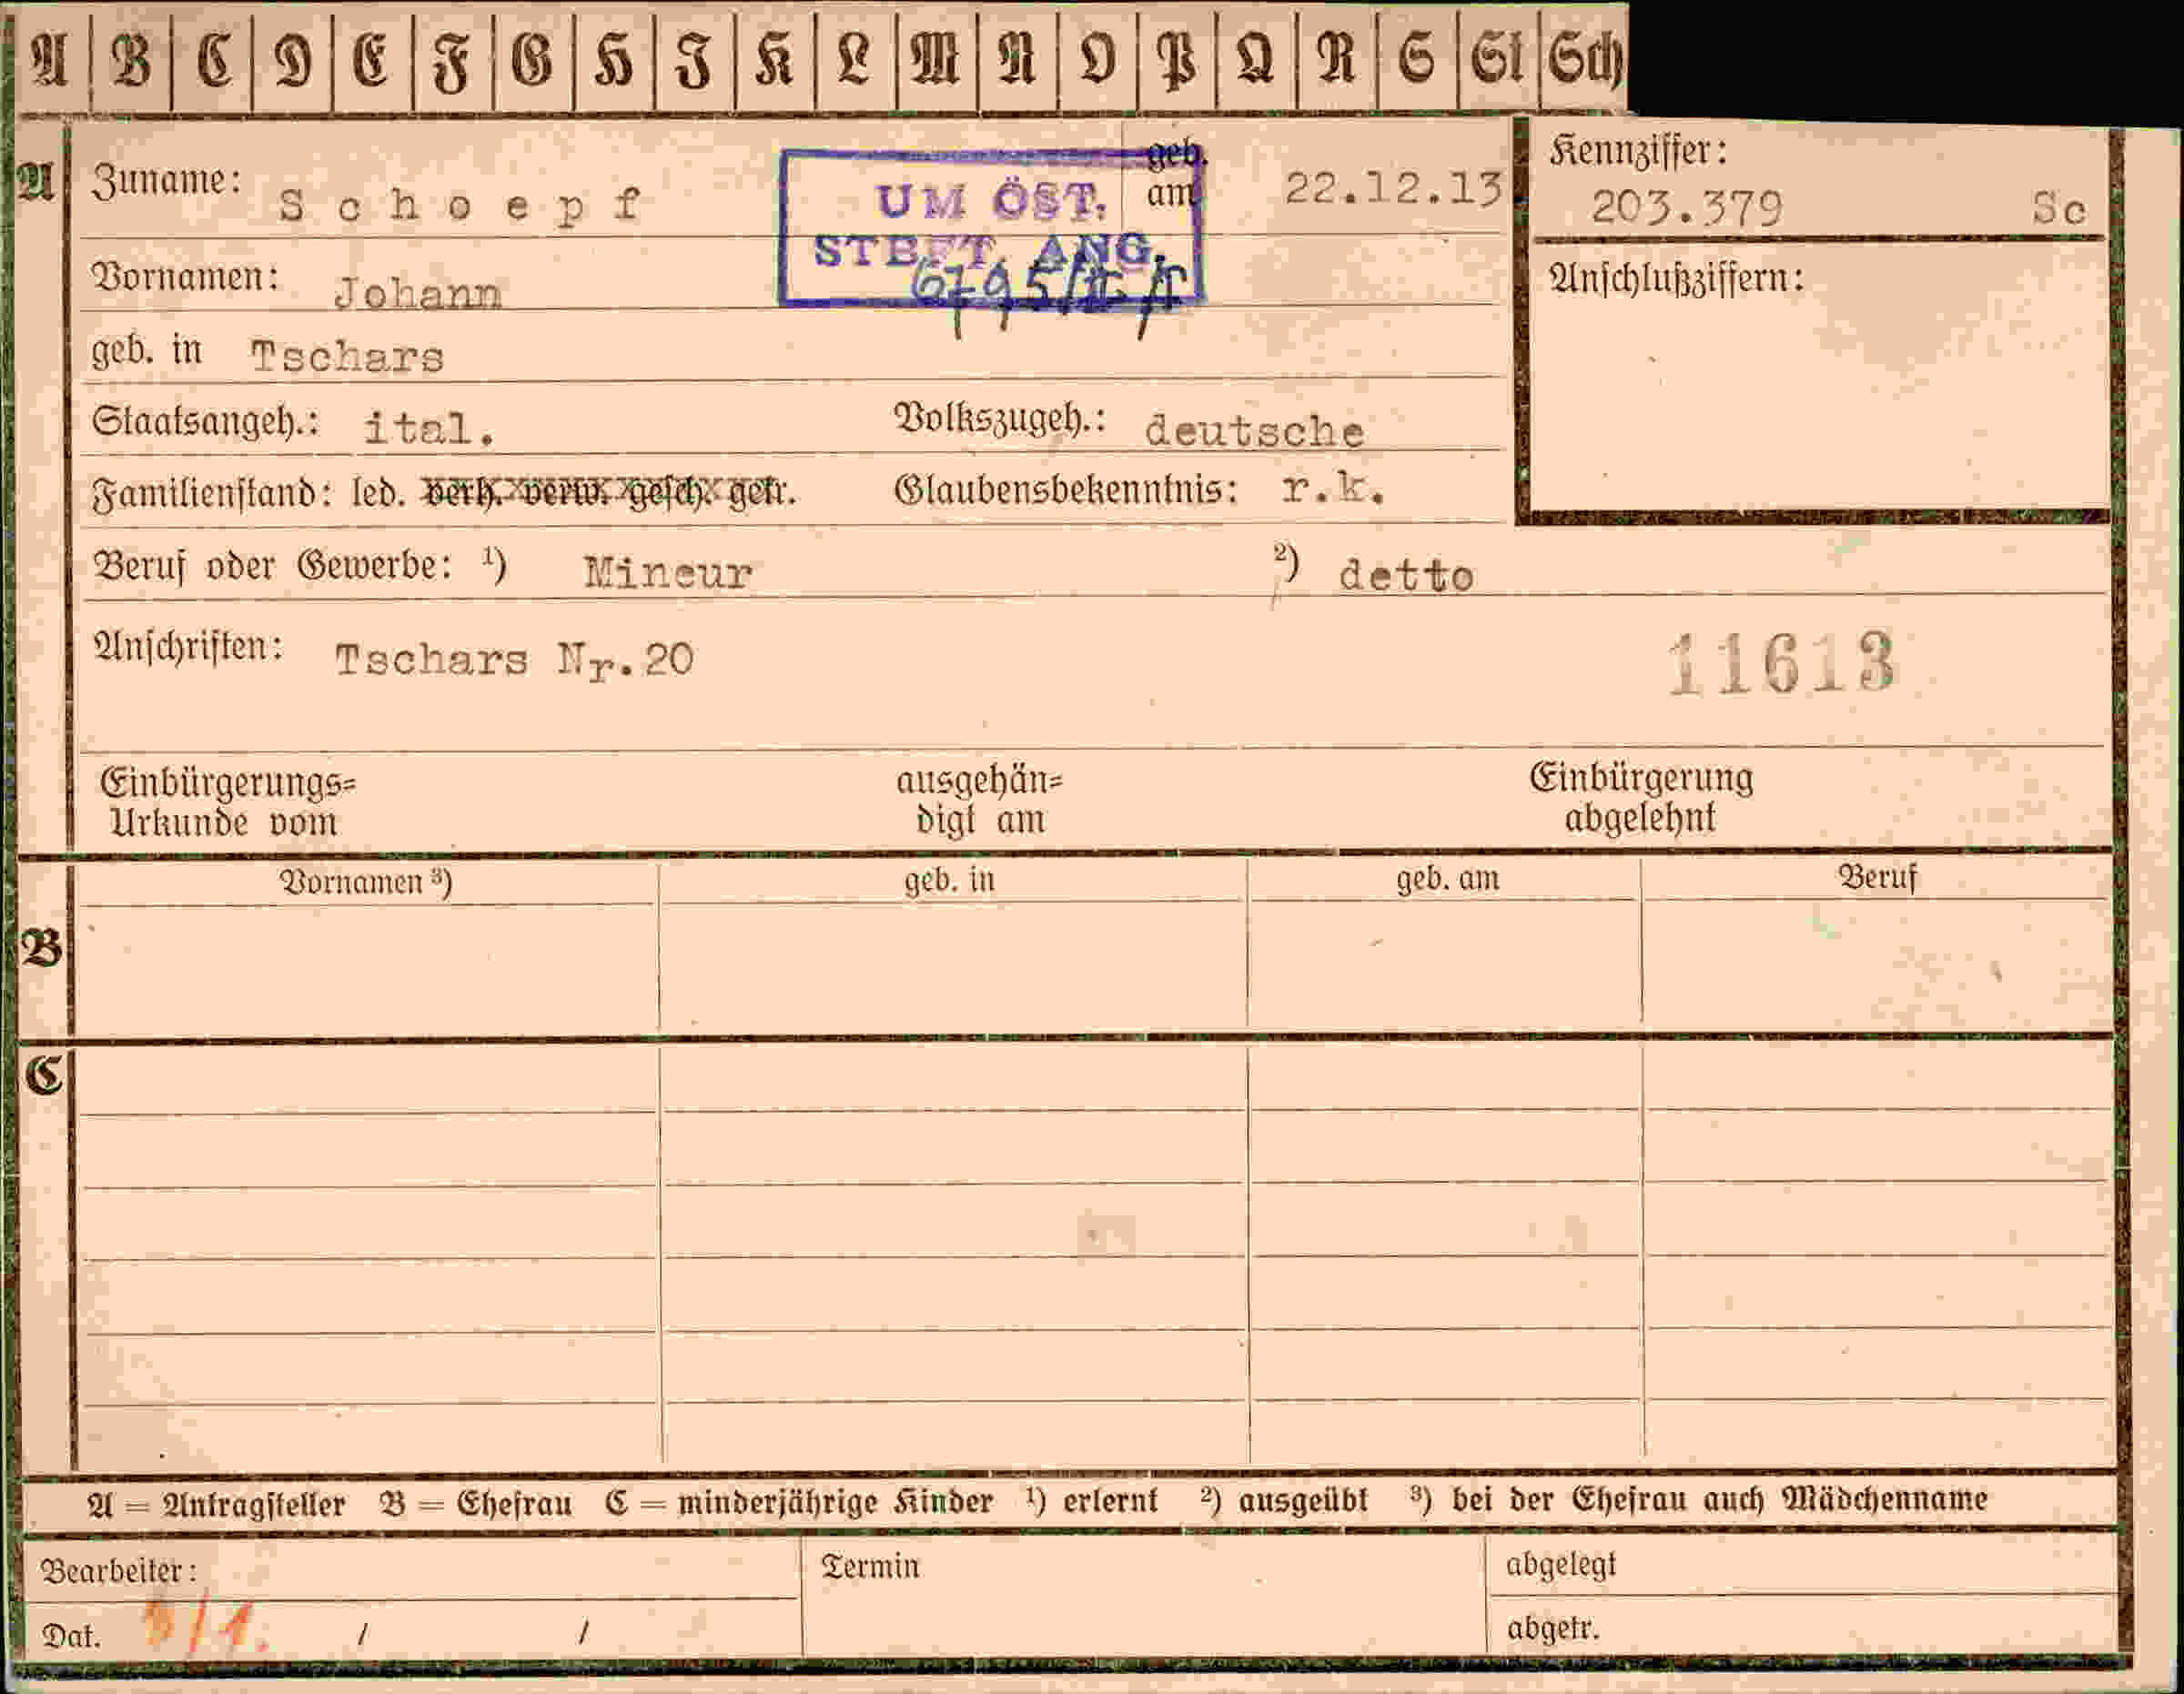 A B C D E F G H I K L M N O P Q R S St Sch
A Zuname: Schoepf geb. am 22.12.13 Kennziffer:
UM ÖST. 203.379 Sc
STBFT. ANG.
Vornamen: Johann Anschlußziffern:
geb. in Tschars
Staatsangeh.: ital. Volkszugeh.: deutsche
Familienstand: led. verh. verw. gesch. getr. Glaubensbekenntnis: r.k.
Beruf oder Gewerbe: ¹) Mineur ²) detto
Anschriften: Tschars Nr.20 11613
Einbürgerungs= ausgehän= Einbürgerung
Urkunde vom digt am abgelehnt
Vornamen ³) geb. in geb. am Beruf
B
C
A = Antragsteller B = Ehefrau C = minderjährige Kinder ¹) erlernt ²) ausgeübt ³) bei der Ehefrau auch Mädchenname
Bearbeiter: Termin abgelegt
Dat. / / abgetr.